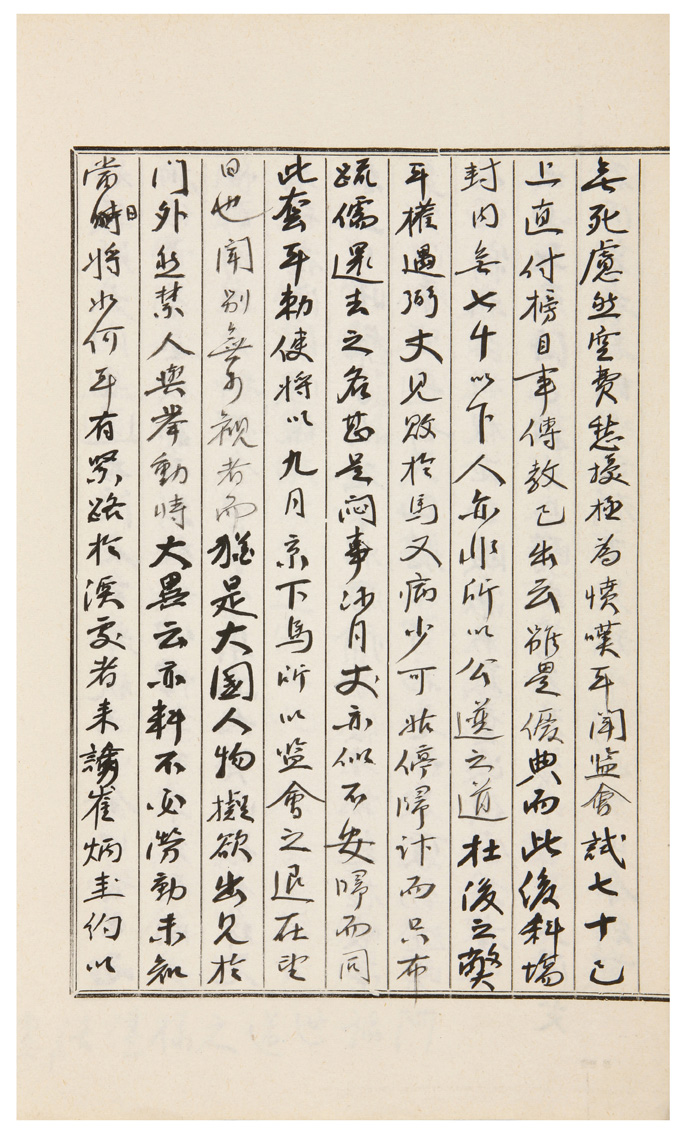 無死慮然空費愁擾極為憤嘆耳聞監會試七十已
上直付榜目事傳教已出云雖是優典而此後科場
封內無七十以下人亦非所以公選之道杜後之弊
耳權遇衡丈見敗於馬又病少可姑停歸計而只布
疏儒還去之名甚是悶事沙月丈亦似不安歸而同
此套耳勅使將以九月京下馬所以監會之退在望
日也聞別無可觀者而猶是大國人物擬欲出見於
门外然禁人輿擧動時大異云亦料不必勞動未知
當日將如何耳有緊路於溪處者來崔炳圭約以